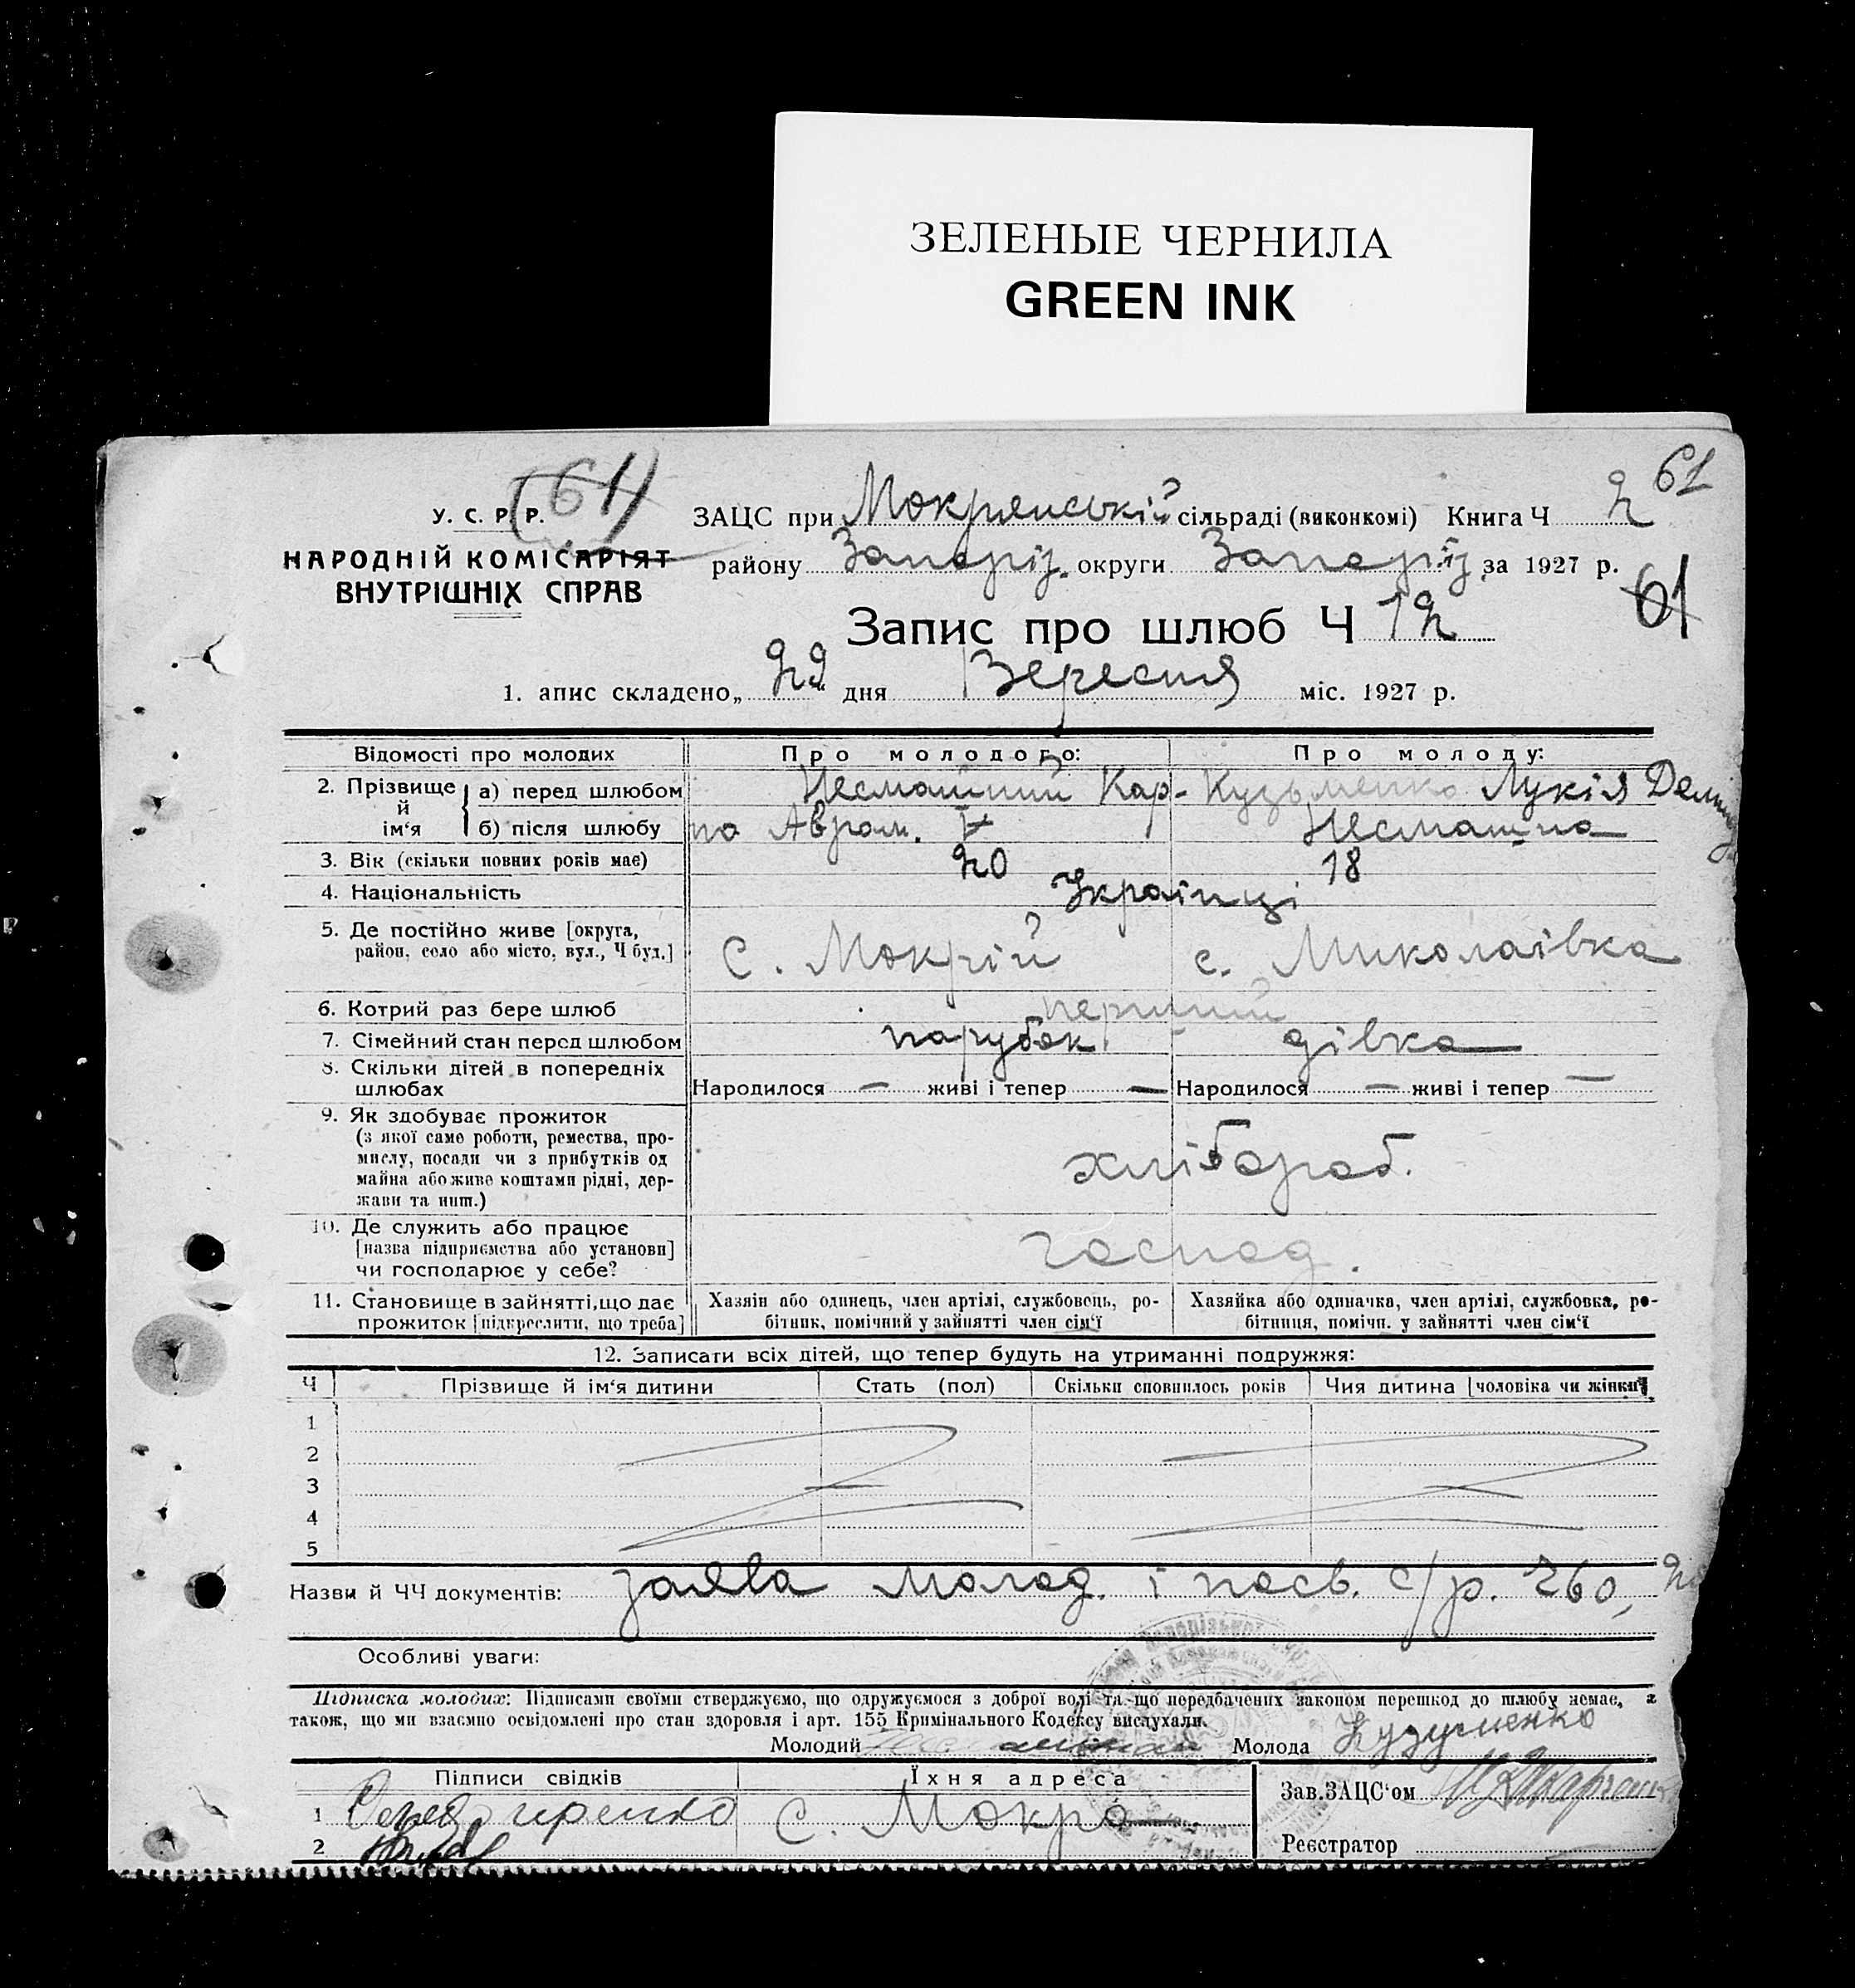 ЗЕЛЕНЫЕ ЧЕРНИЛА
GREEN INK
61
(61)
У. С. Р. Р.
НАРОДНІЙ КОМІСАРІЯТ
ВНУТРІШНІХ СПРАВ
ЗАЦС при Мокрянській сільраді (виконкомі) Книга Ч 2
району Запоріз. округи Запоріз за 1927 р.
61
Запис про шлюб Ч 12
1. апис складено „29“ дня Вересня міс. 1927 р.
Відомості про молодих Про молодого: Про молоду:
2. Прізвище й ім‘я а) перед шлюбом Несмашний Кар- Кузьменко Лукія
б) після шлюбу по Аврам. Несмашна
3. Вік (скільки повних років має) 20 18
4. Національність Українці
5. Де постійно живе [округа, район, село або місто, вул., Ч буд.] С. Мокрій с. Миколаівка
6. Котрий раз бере шлюб перший
7. Сімейний стан перед шлюбом парубок дівка
8. Скільки дітей в попередніх шлюбах Народилося — живі і тепер — Народилося — живі і тепер —
9. Як здобуває прожиток
(з якої саме роботи, ремества, про-
мислу, посади чи з прибутків од
майна або живе коштами рідні, дер-
жави та инш.)
хлібороб.
10. Де служить або працює
[назва підприємства або установи]
чи господарює у себе?
господ.
11. Становище в зайнятті, що дає
прожиток [підкреслити, що треба]
Хазяін або одинець, член артілі, службовець, ро-
бітник, помічний у зайнятті член сім‘ї
Хазяйка або одиначка, член артілі, службовка, ро-
бітниця, помічн. у зайнятті член сім‘ї
12. Записати всіх дітей, що тепер будуть на утриманні подружжя:
Ч Прізвище й ім‘я дитини Стать (пол) Скільки сповнилось років Чия дитина [чоловіка чи жінки]
1
2
3
4
5
Назви й ЧЧ документів: заява молод. і посв. с/р. 260,
Особливі уваги:
Підписка молодих: Підписами своїми стверджуємо, що одружуємося з доброї волі та що передбачених законом перешкод до шлюбу немає, а
також, що ми взаємно освідомлені про стан здоровля і арт. 155 Кримінального Кодексу вислухали.
Молодий Молода Кузьменко
Підписи свідків Їхня адреса
Зав.ЗАЦС‘ом
1 С. Мокра
2
Реєстратор